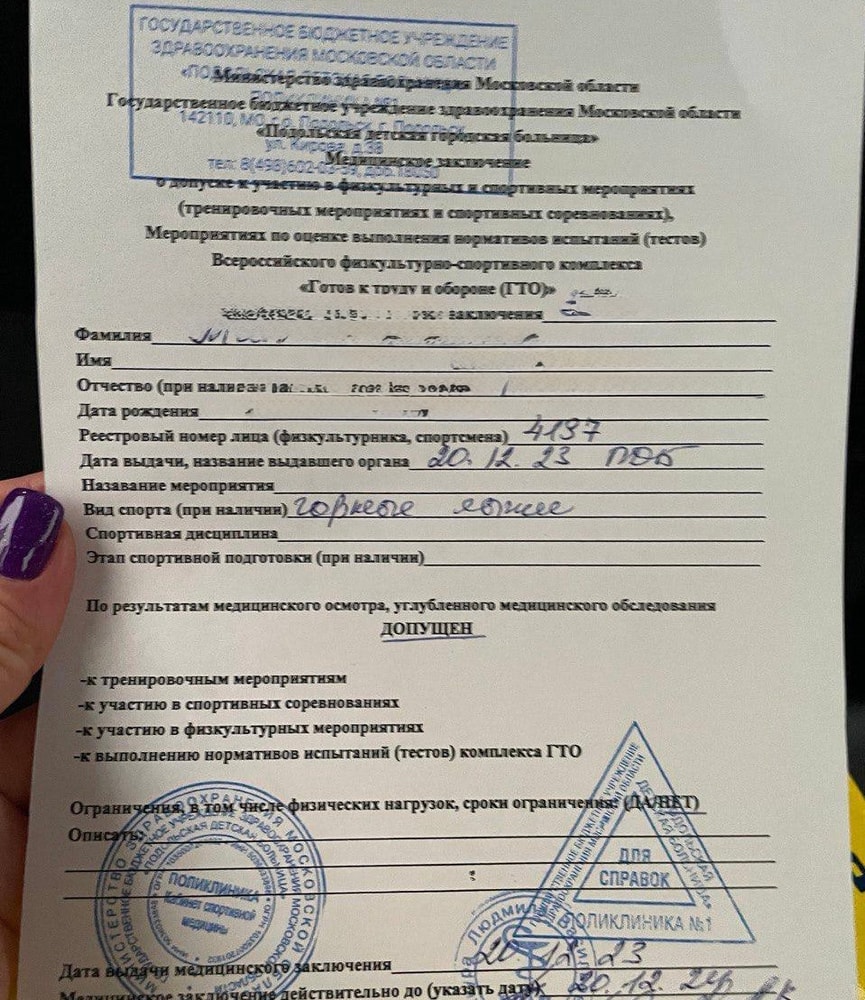 ГОСУДАРСТВЕННОЕ БЮДЖЕТНОЕ УЧРЕЖДЕНИЕ
ЗДРАВООХРАНЕНИЯ МОСКОВСКОЙ ОБЛАСТИ
Министерство здравоохранения Московской области
Государственное бюджетное учреждение здравоохранения Московской области
142110, МО, г.о. Подольск, г. Подольск,
«Подольская детская городская больница»
ул. Кирова, д.38
Медицинское заключение
о допуске к участию в физкультурных и спортивных мероприятиях
(тренировочных мероприятиях и спортивных соревнованиях),
Мероприятиях по оценке выполнения нормативов испытаний (тестов)
Всероссийского физкультурно-спортивного комплекса
«Готов к труду и обороне (ГТО)»
заключения
Фамилия
Имя
Отчество (при
Дата рождения
Реестровый номер лица (физкультурника, спортсмена) 4137
Дата выдачи, название выдавшего органа 20.12.23
Назавание мероприятия
Вид спорта (при наличии) горные лыжи
Спортивная дисциплина
Этап спортивной подготовки (при наличии)
По результатам медицинского осмотра, углубленного медицинского обследования
ДОПУЩЕН
-к тренировочным мероприятиям
-к участию в спортивных соревнованиях
-к участию в физкультурных мероприятиях
-к выполнению нормативов испытаний (тестов) комплекса ГТО
Ограничения, в том числе физических нагрузок, сроки ограничения: (ДА/НЕТ)
Описать:
ПОЛИКЛИНИКА
Кабинет спортивной
медицины
ДЛЯ
СПРАВОК
ПОЛИКЛИНИКА №1
Дата выдачи медицинского заключения 20.12.23
Медицинское заключение действительно до (указать дату) 20.12.24